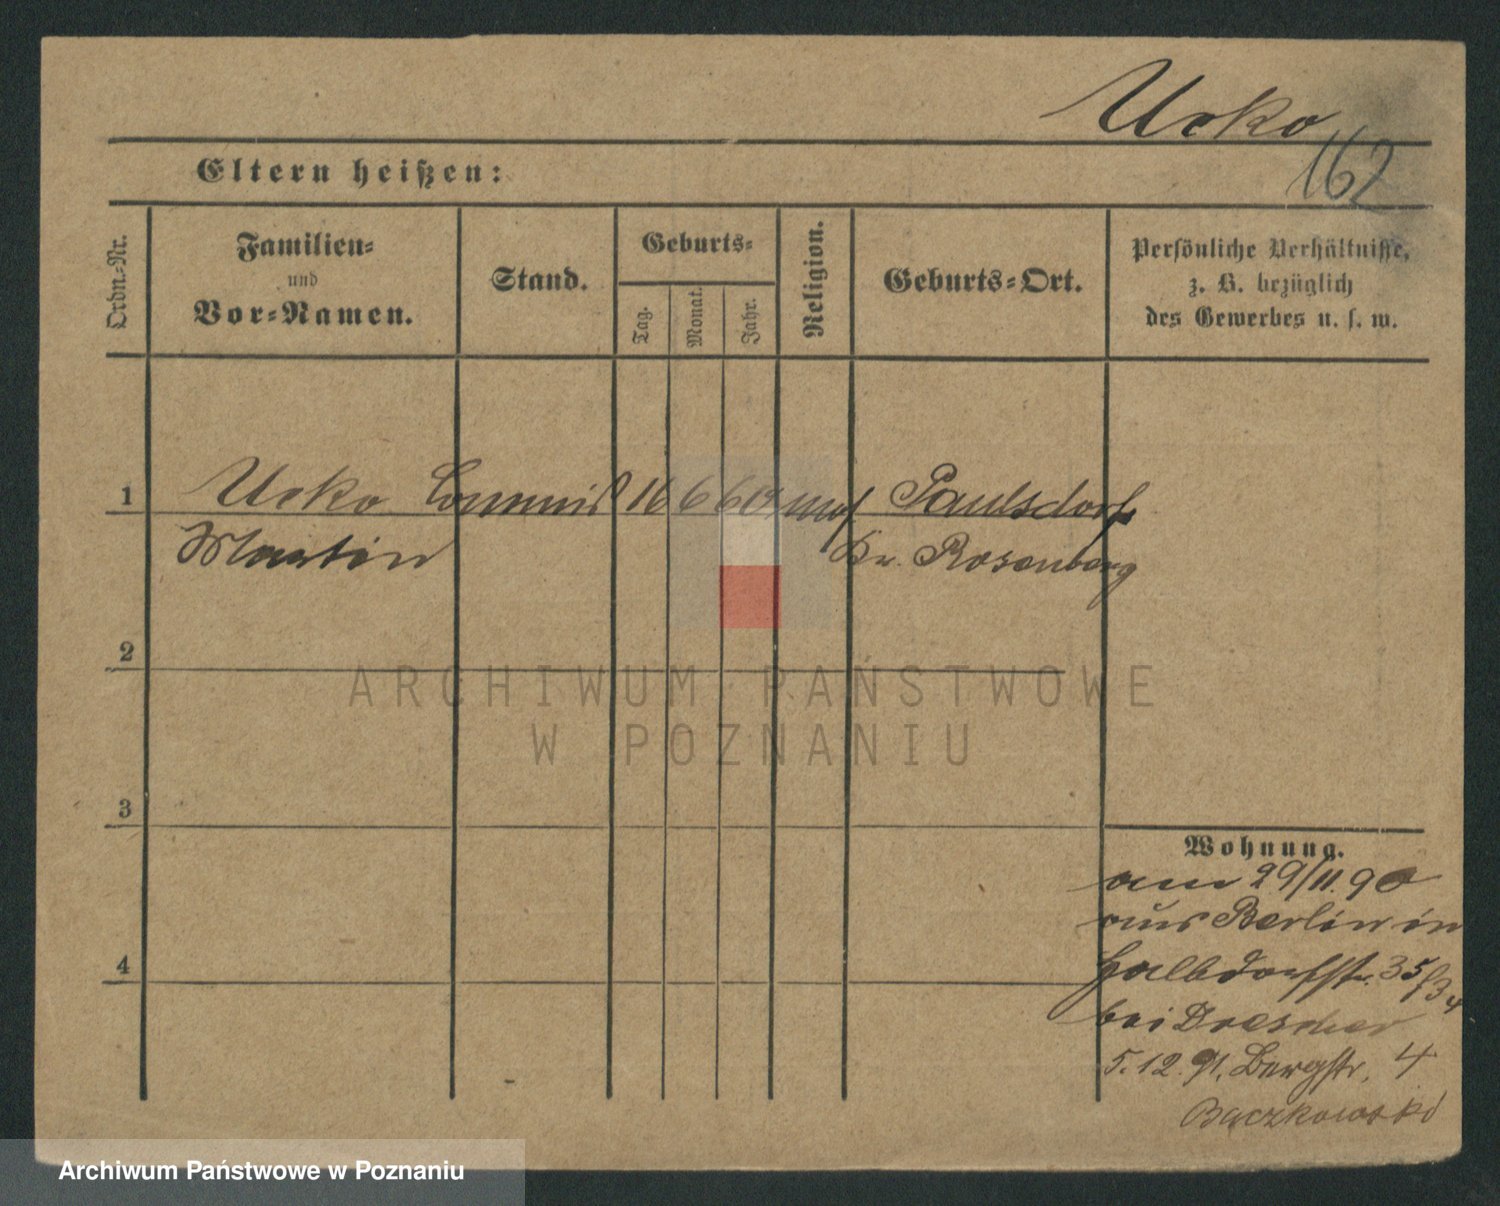 Ucko
162
Eltern heißen:
Ordn.-Nr.
Familien-
und
Vor-Namen.
Stand.
Geburts-
Tag.
Monat.
Jahr.
Religion.
Geburts-Ort.
Persönliche Verhältnisse,
z. B. bezüglich
des Gewerbes u. s. w.
1 Ucko Commis 16 6 60 mos. Paulsdorf
Martin Kr. Rosenberg
2
ARCHIWUM PAŃSTWOWE
W POZNANIU
3
Wohnung.
am 29/11.90
aus Berlin in
Halbdorfstr. 35/34
4
bei Drescher
5.12.91. Bergstr. 4
Bączkowski
Archiwum Państwowe w Poznaniu